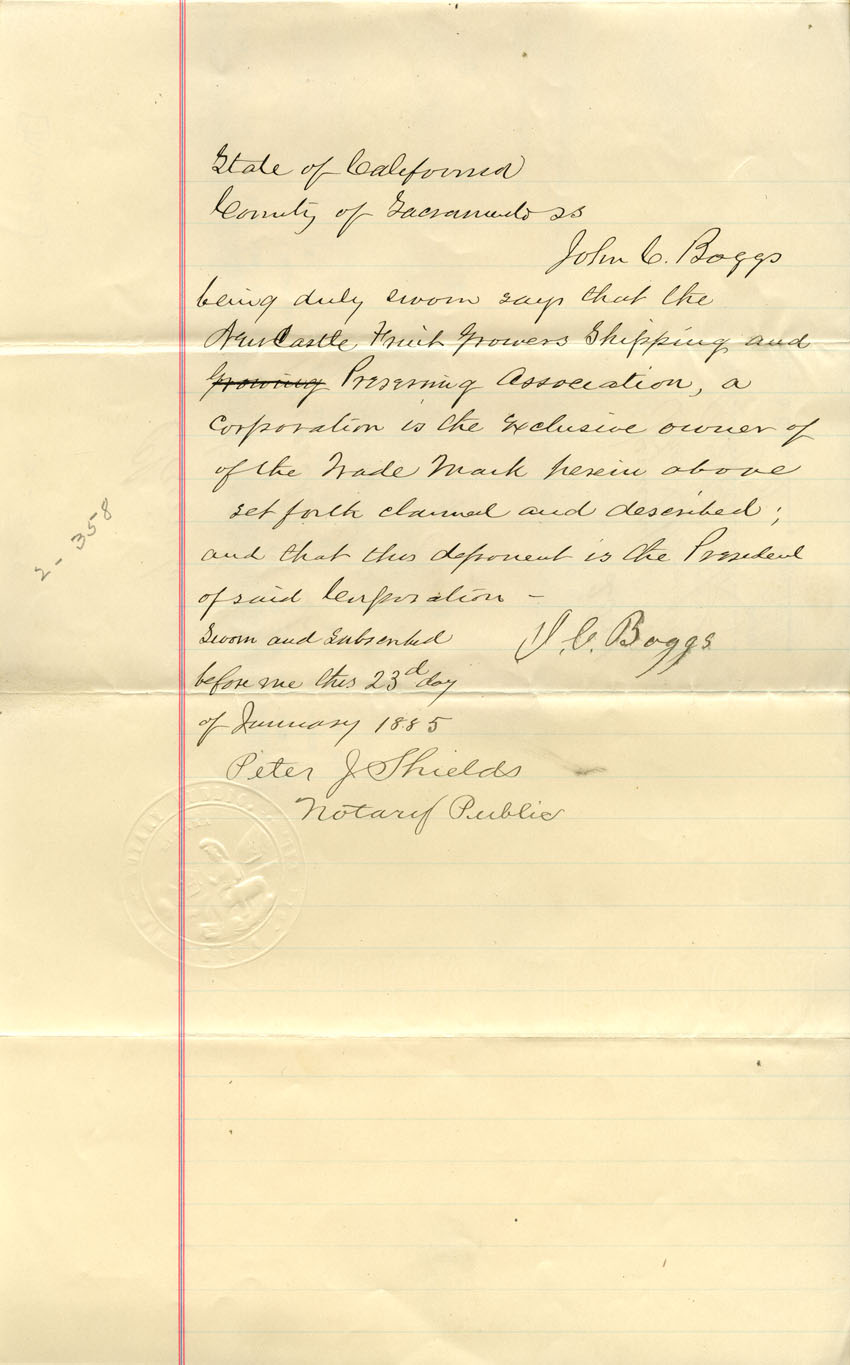 State of California
County of Sacramento ss
John C. Boggs
being duly sworn says that the
NewCastle Fruit Growers Shipping and
Growing Preserving Association, a
Corporation is the Exclusive owner of
of the Trade Mark herein above
set forth claimed and described;
and that this deponent is the President
of said Corporation -
Sworn and Subscribed
before me this 23d day
of January 1885
J. C. Boggs
Peter J Shields
Notary Public
2-358